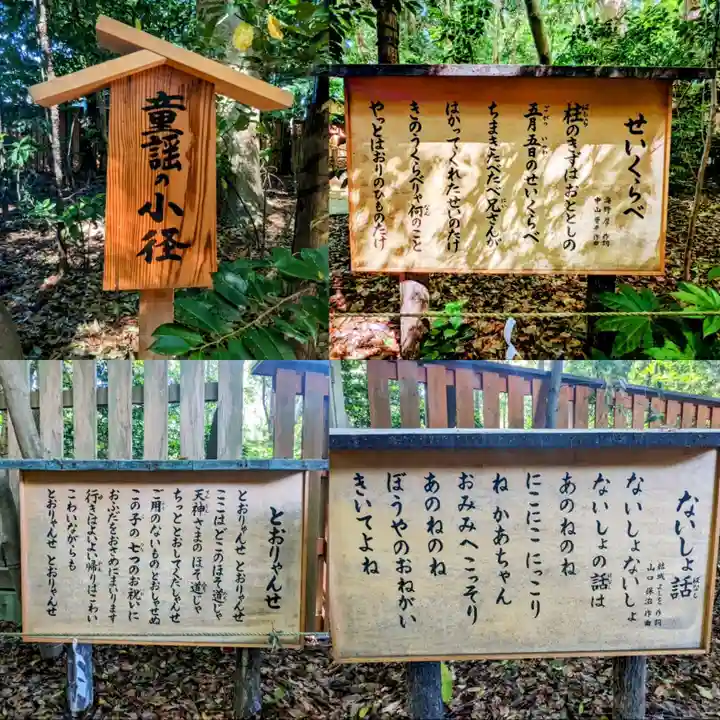 童謡の小径
せいくらべ
海野厚 作詞
中山晋平 作曲
柱のきずはおととしの
五月五日のせいくらべ
ちまきたべたべ兄さんが
はかってくれたせいのたけ
きのうくらべりゃ何のこと
やっとはおりのひものたけ
とおりゃんせ
とおりゃんせ とおりゃんせ
ここはどこのほそ道じゃ
天神さまのほそ道じゃ
ちっととおしてくだしゃんせ
ご用のないものとおしゃせぬ
この子の七つのお祝いに
おふだをおさめにまいります
行きはよいよい帰りはこわい
こわいながらも
とおりゃんせ とおりゃんせ
ないしょ話
結城よしを 作詞
山口保治 作曲
ないしょないしょ
ないしょの話は
あのねのね
にこにこ にっこり
ね かあちゃん
おみみへ こっそり
あのねのね
ぼうやのおねがい
きいてよね